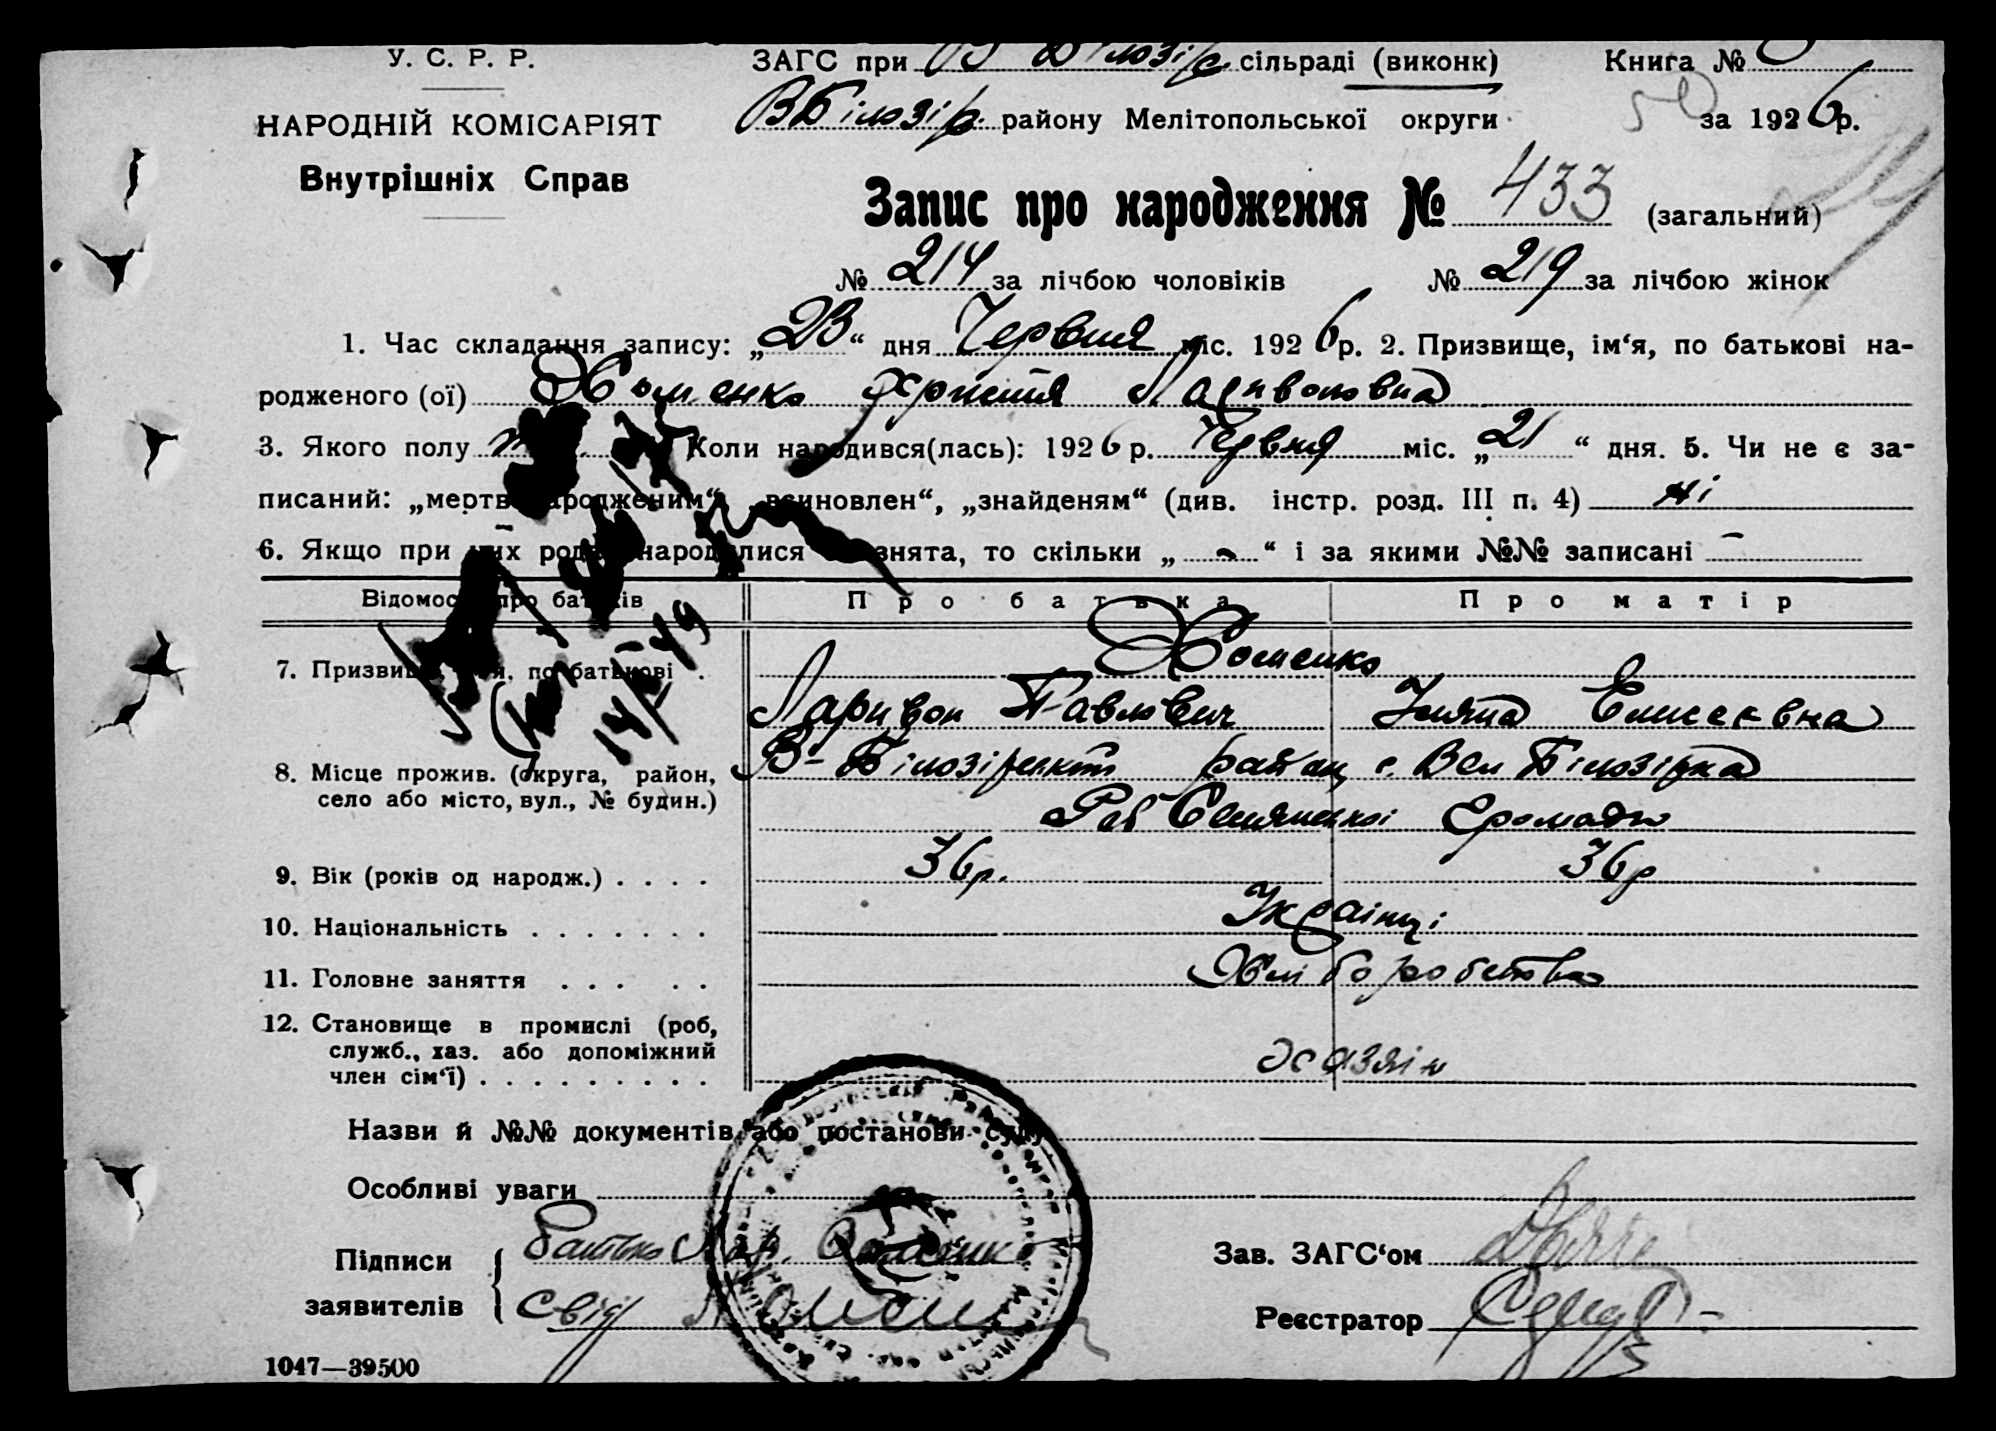 У. С. Р. Р.
ЗАГС при В Білозір. сільраді (виконк) Книга №
НАРОДНІЙ КОМІСАРІЯТ
В Білозір. району Мелітопольської округи за 1926 р.
Внутрішніх Справ
Запис про народження № 433 (загальний)
№ 214 за лічбою чоловіків № 219 за лічбою жінок
1. Час складання запису: „23“ дня Червня міс. 1926 р. 2. Призвище, ім‘я, по батькові на-
родженого (ої) Хоменко Христя Ларивоновна
3. Якого полу Коли народився(лась): 1926 р. Червня міс. „21“ дня. 5. Чи не є за-
писаний: „мертвонародженим“, „всиновлен“, „знайденям“ (див. інстр. розд. III п. 4) ні
6. Якщо при них народилися двознята, то скільки „ - “ і за якими №№ записані -
Відомості про батьків Про батька Про матір
7. Призвище, ім‘я, по батькові . Хоменко
14/V 49
Ларивон Павлович Уляна Елисеевна
8. Місце прожив. (округа, район, село або місто, вул., № будин.) В-Білозірський район с. Вел Білозірка
Громади
9. Вік (років од народж.) . . . . 36 р. 36 р
10. Національність . . . . . . . Українці
11. Головне заняття . . . . . Хліборобство
12. Становище в промислі (роб, служб., хаз. або допоміжний член сім‘ї) . . . . . . . . . хазяїн
Назви й №№ документів або постанови суду
Особливі уваги
Підписи заявителів { Батько Лар. Хоменко
свід
Зав. ЗАГС‘ом
Реєстратор
1047—39500